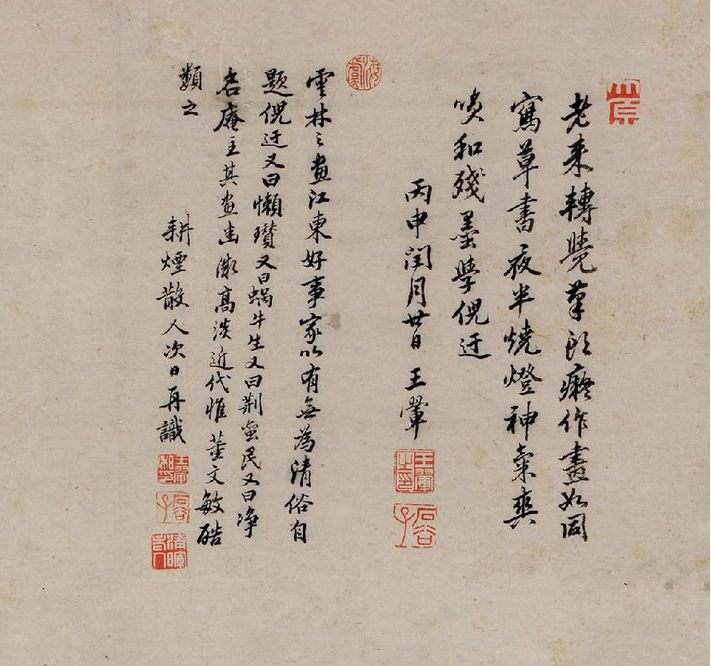 老来轉覺筆頭癡作畫如同
寫草書夜半燒燈神氣爽
和殘墨學倪迂
丙申閏月廿日王翬
王翬之印
石谷子
雲林之畫江東好事家以有無為清俗自
題倪迂又曰懶瓚又曰蝸牛生又曰荆蠻民又曰净
名庵主其畫幽澂高淡近代惟董文敏酷
類之
耕煙散人次日再識
石谷子